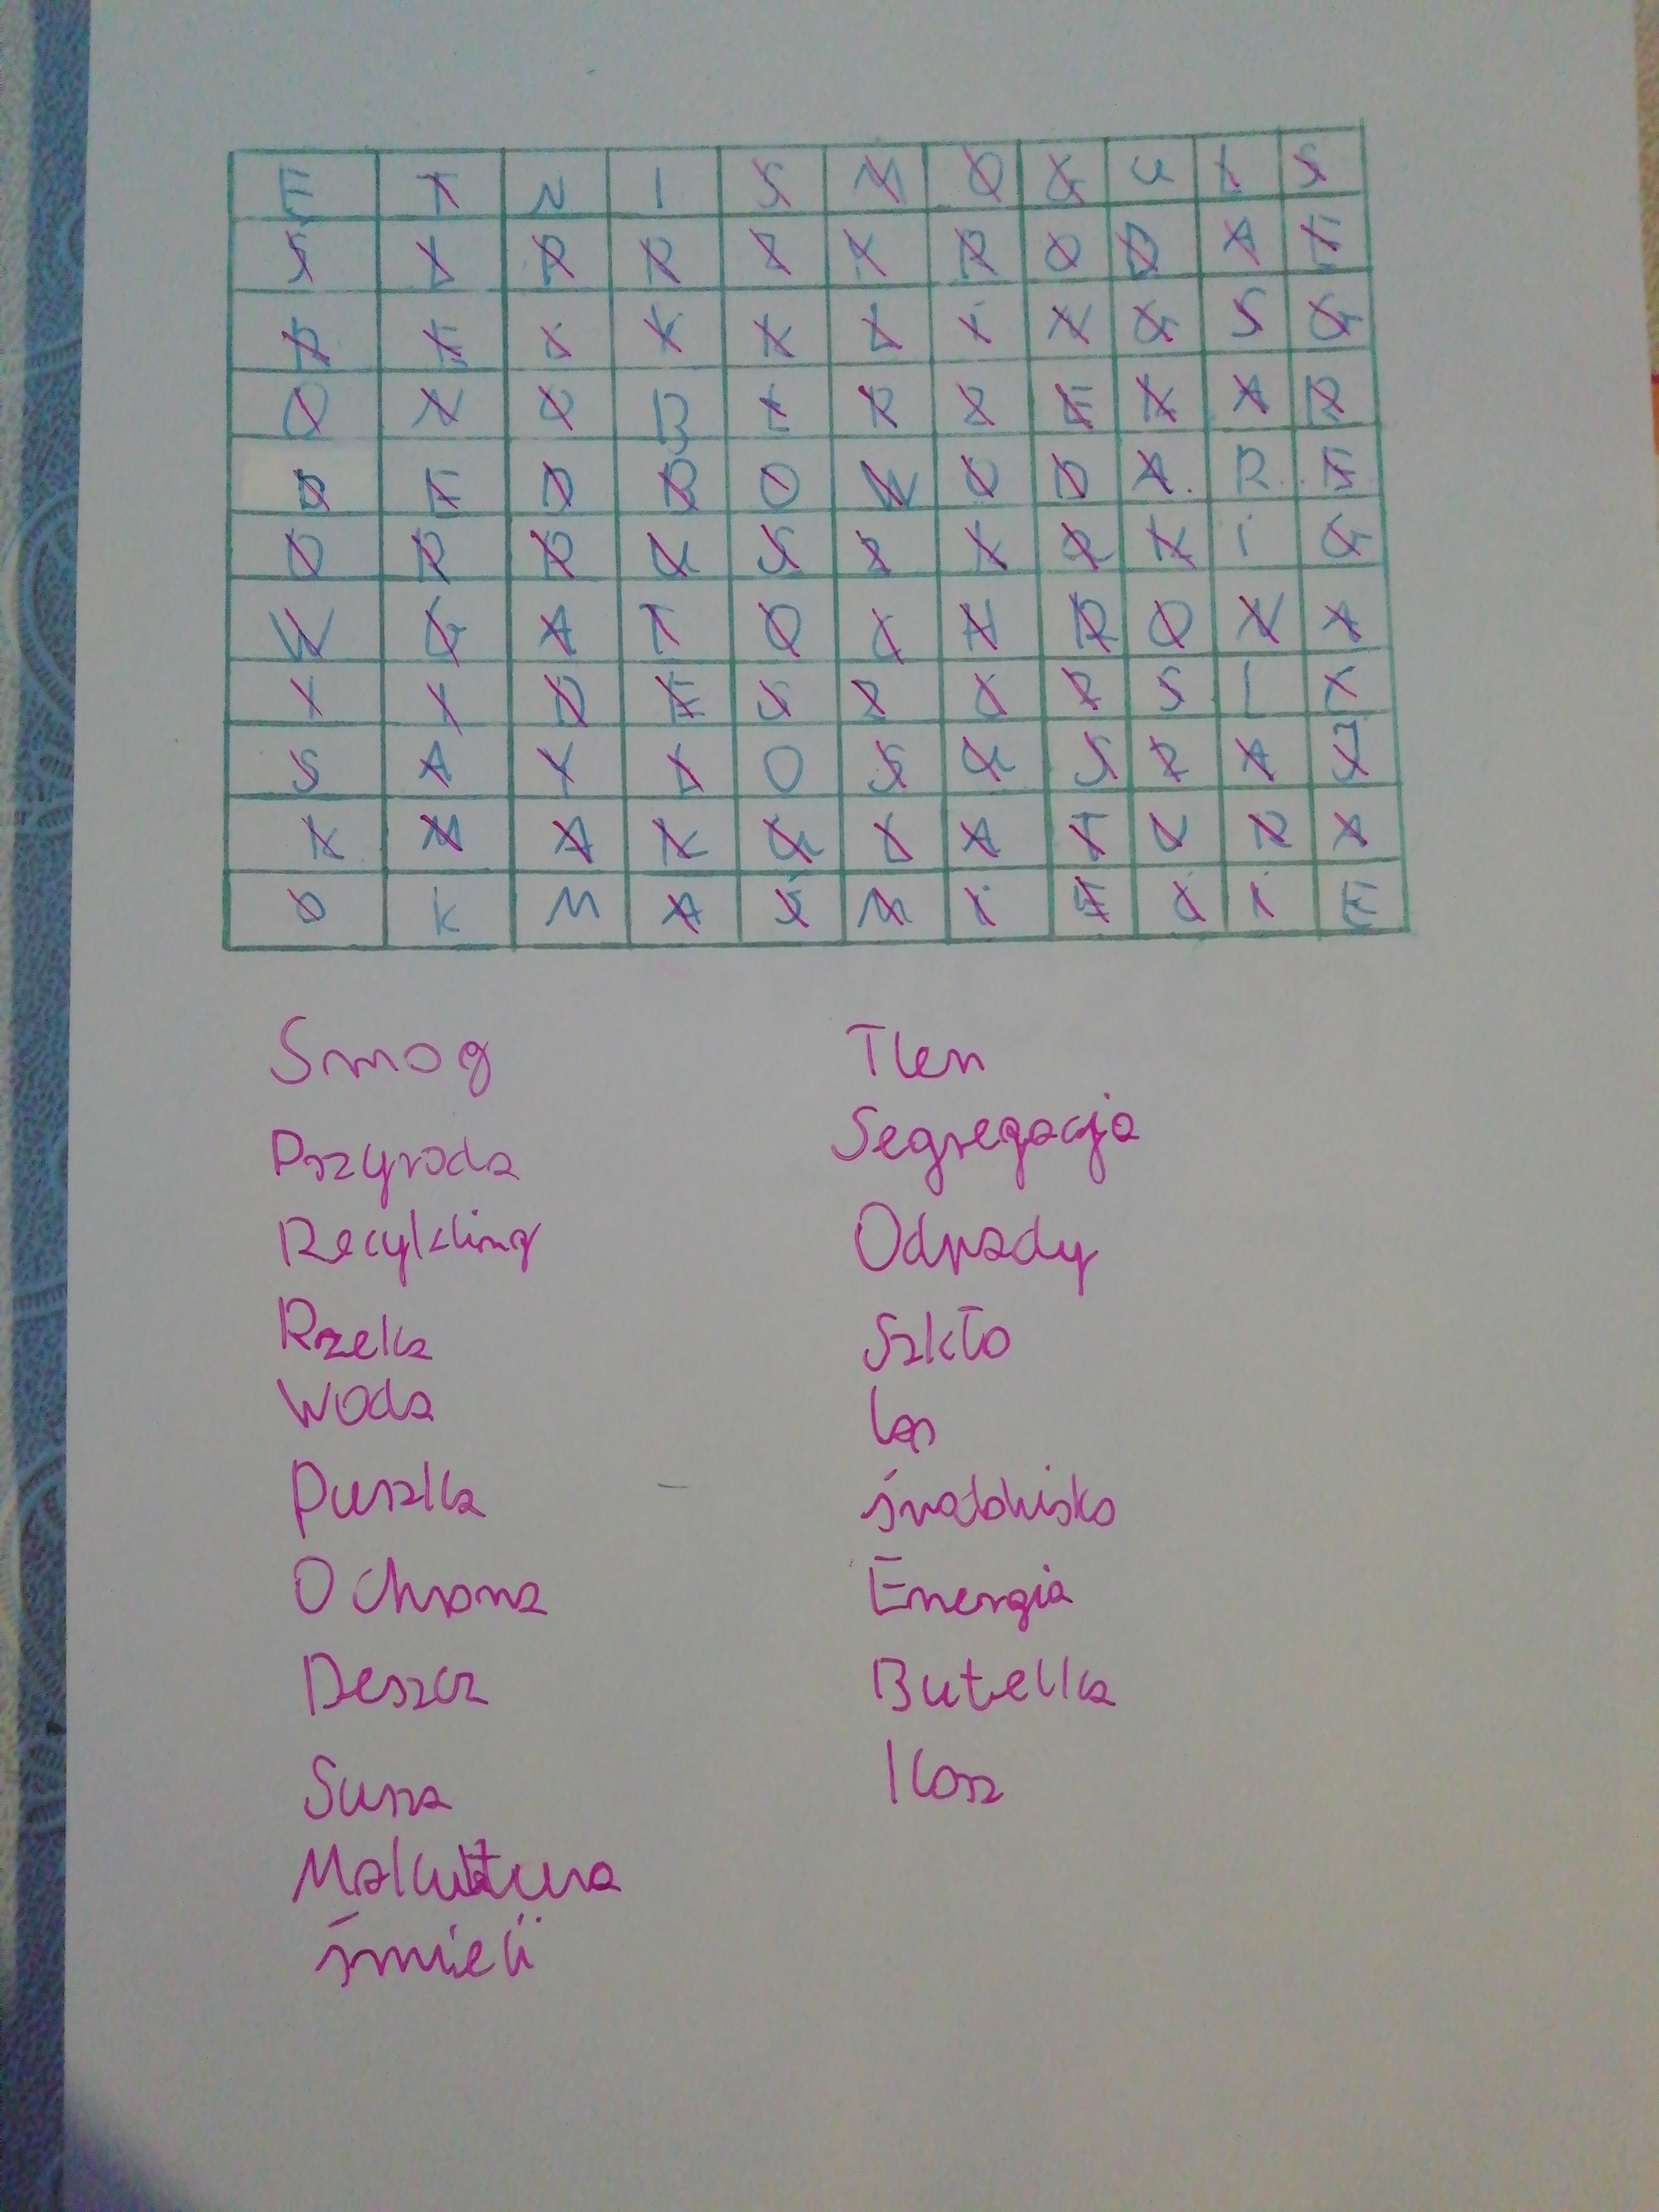 E T N I S M O G U L S
Ś L P R Z Y R O D A E
R E C Y K L I N G S G
O N O B Ł R Z E K A R
D E D B O W O D A. R. E
O R P U S Z K A K I G
W G A T O C H R O N A
I I D E S Z C Z S L C
S A Y L O S U S Z A J
K M A K U L A T U R A
O K M A Ś M I E C I E
Smog
Przyroda
Recykling
Rzeka
Woda
Puszka
Ochrona
Deszcz
Susza
Makulatura
śmieci
Tlen
Segregacja
Odpady
Szkło
las
środowisko
Energia
Butelka